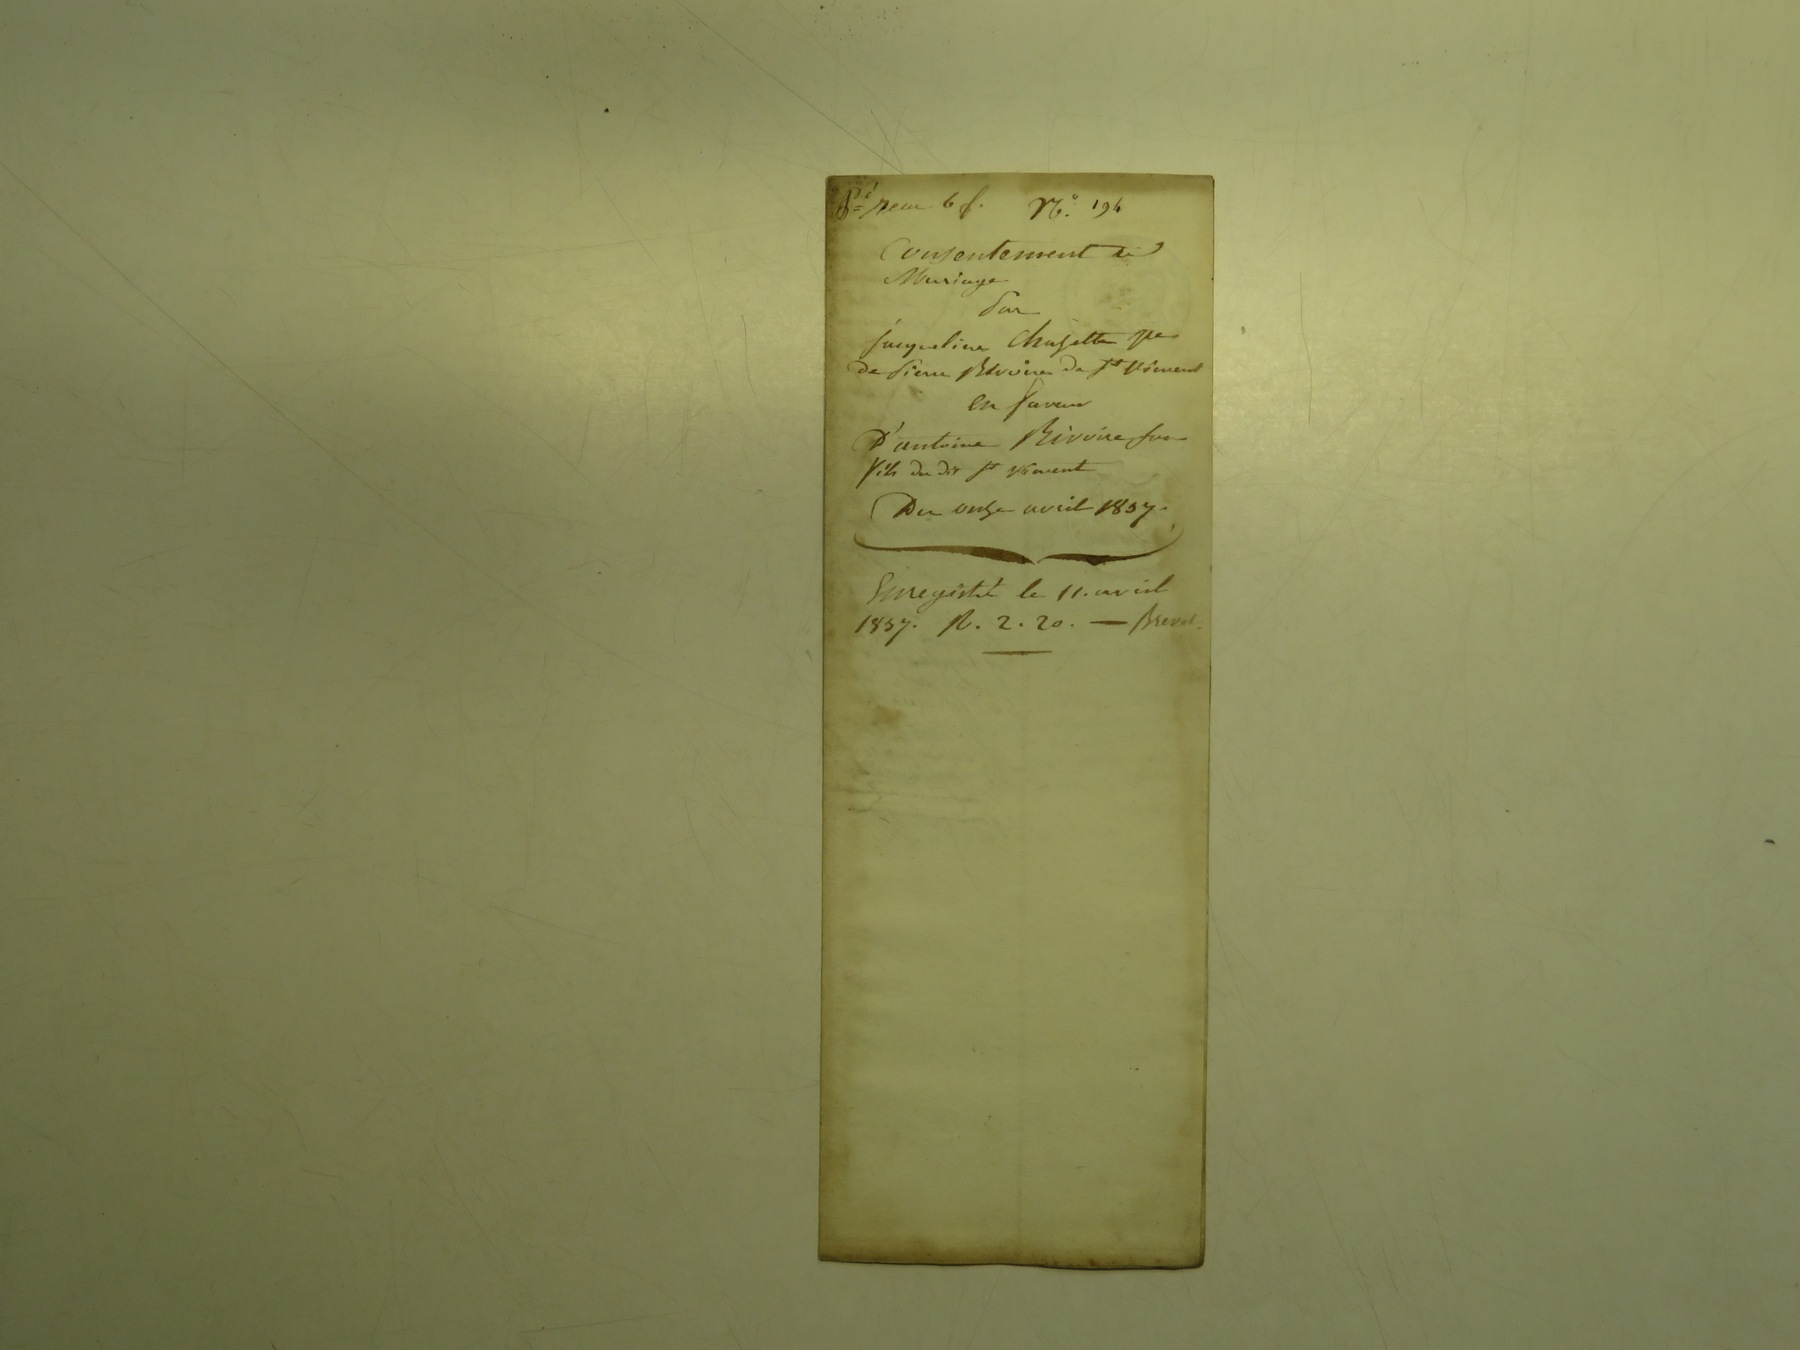 6 f. N.° 194
Consentement de
Mariage
Par
Jacqueline Chazette
de Pierre Rivoire de St Vincent
en faveur
D'antoine Rivoire son
fils du dit St Vincent
Du onze avril 1837.
Enregistré le 11. avril
1837. R. 2. 20. — Brevet.